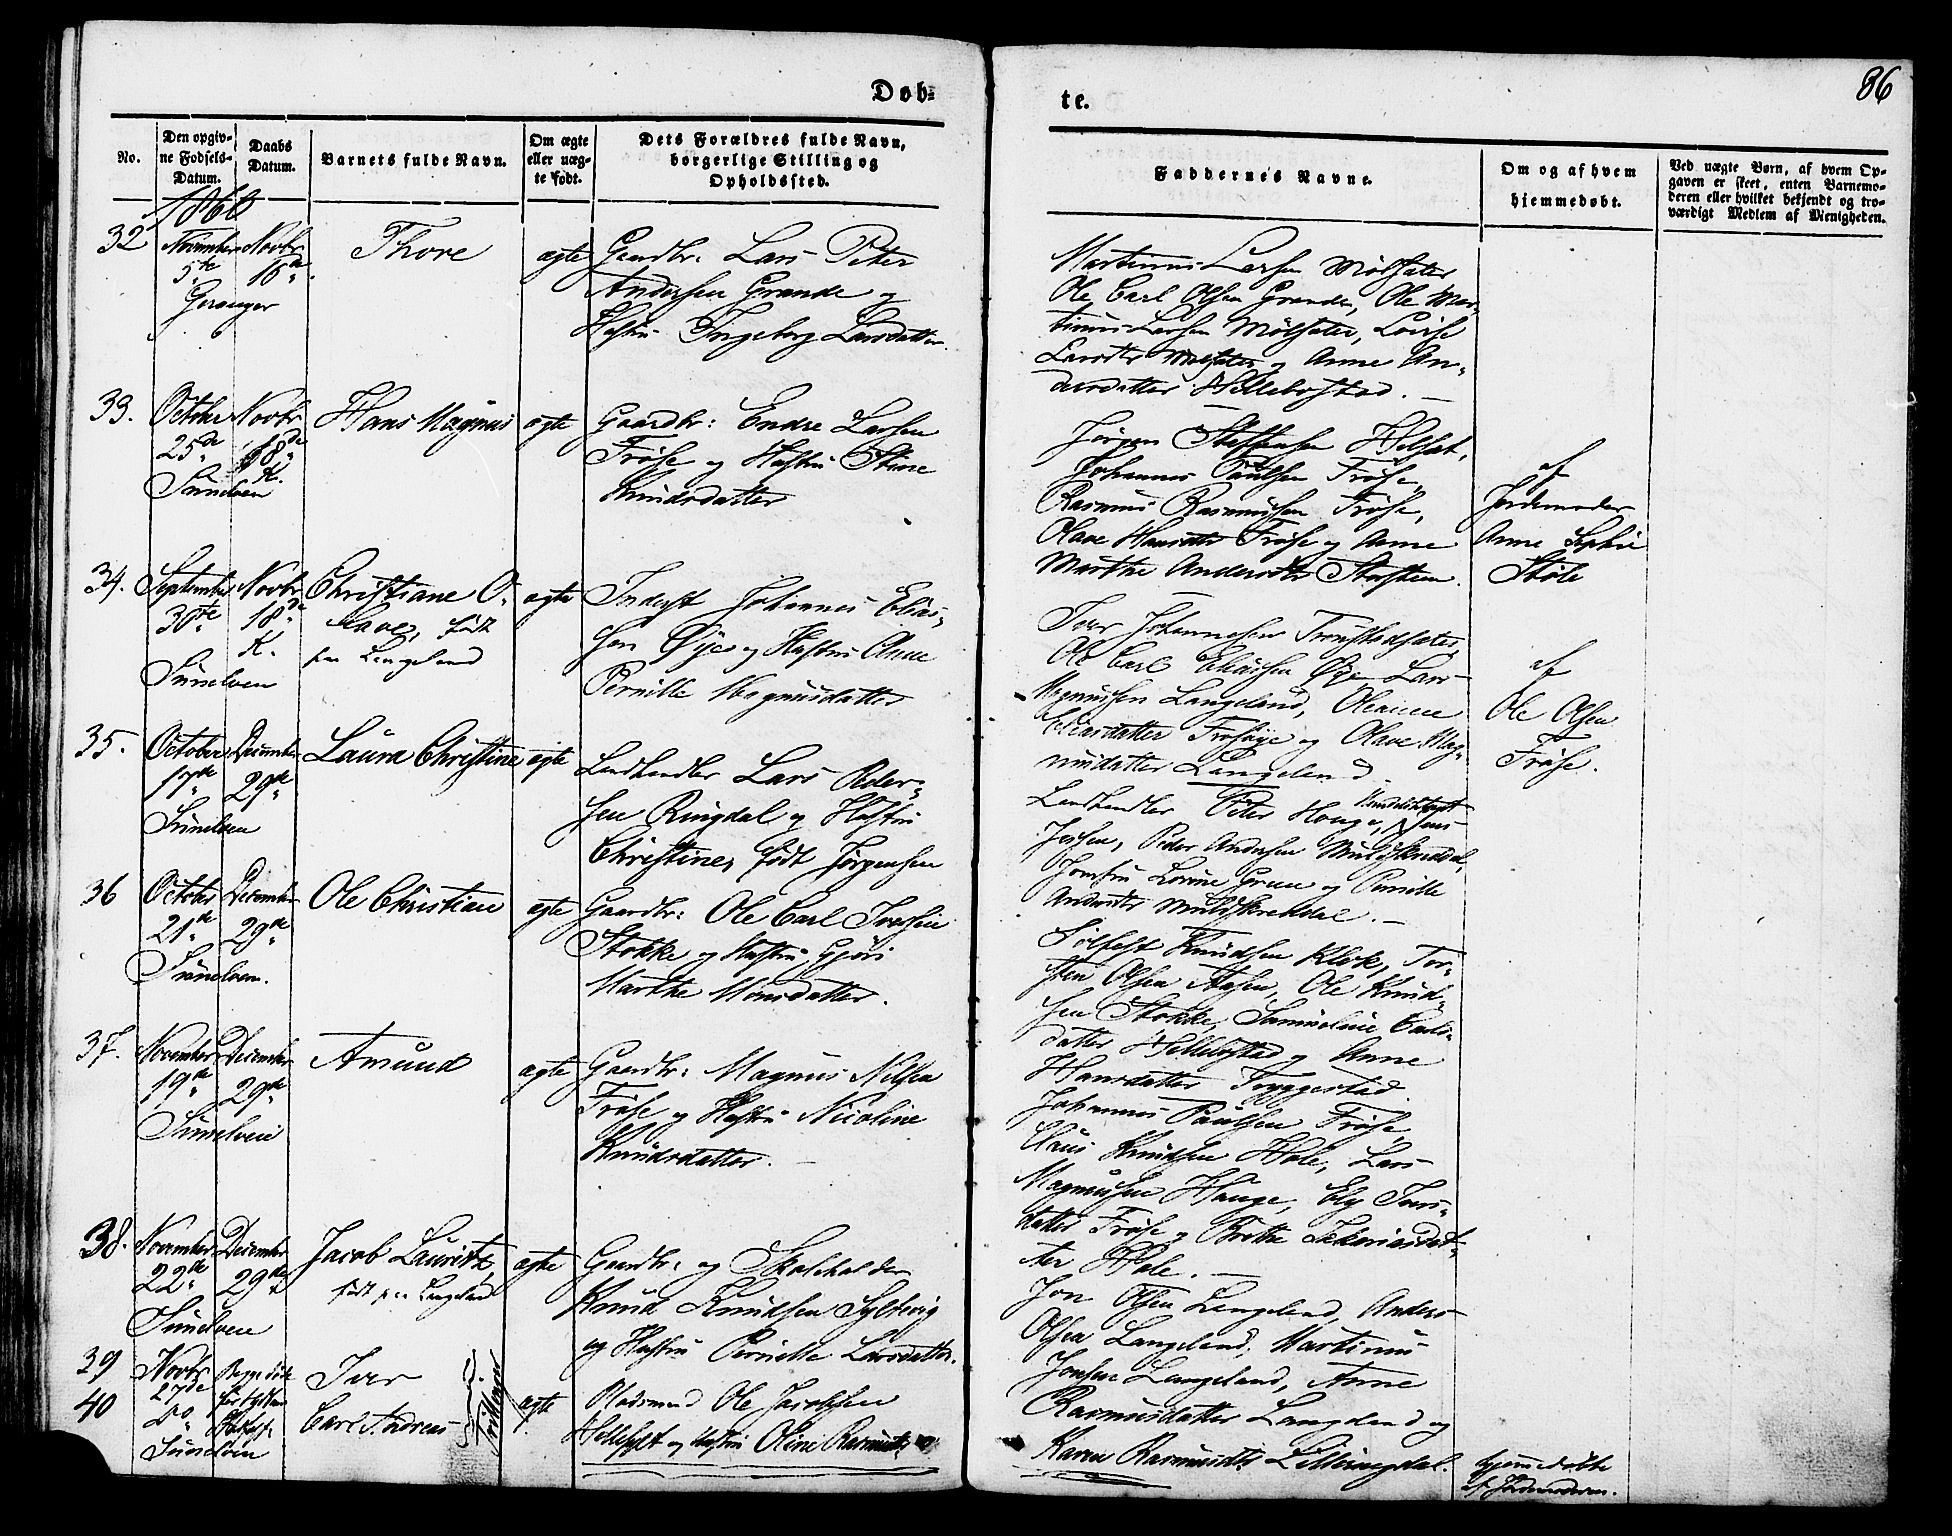 Døb=
te.
86
No.
Den opgiv-
ne Fødsels-
Datum.
Daabs
Datum.
Barnets fulde Navn.
Om ægte
eller uæg-
te født.
Dets Forældres fulde Navn,
borgerlige Stilling og
Opholdssted.
Faddernes Navne.
Om og af hvem
hjemmedøbt.
Ved uægte Børn, af hvem Op-
gaven er skeet, enten Barnemo-
deren eller hvilket bekjendt og tro-
værdigt Medlem af Menigheden.
1866
32
November
5te
Geranger
Novbr
Thore
ægte
Gaardbr: Lars Peter
Andersen Grande og
Hustru Ingeborg Larsdatter.
Martinus Larsen Mølsæter
Ole Carl Olsen Grande, Ole Mar-
tinus Larsen Mølsæter, Lovise
Larsdtr Mølsæter og Anne An-
dersdatter Hellebostad. —
33.
October
25de
Sunelven
Novbr
18de
K.
Hans Magnus
ægte
Gaardbr: Endre Larsen
Frøise og Hustru Stine
Knudsdatter
Jørgen Steffensen
Johannes Paulsen Frøise,
Rasmus Rasmussen Frøise,
Olave Hansdtr Frøise og Anne
Marthe Andersdtr
af
Jordemoder
Anne Sophie
Støle
34.
September
30te
Sunelven
Novbr
18de
K.
Christiane O-
lave, født
paa Langeland
ægte
Inderst Johannes Elias-
sen Øye og Hustru Anne
Pernille Magnusdatter
Iver Johannesen
Ole Carl Eliassen Øye Lars
Magnussen Langeland,
Eliasdatter og Olave Mag-
nusdatter Langeland.
af
Ole Olsen
Frøise.
35.
October
17de
Sunelven
December
29de
Laura Christine
ægte
Landhandler Lars Peder-
sen Ringdal og Hustru
Christine, født Jørgensen
Landhandler Peter Hauge, Jens
Peder Andersen Muldskreddal,
Jomfru Lovine og Pernille
Andersdtr Muldskreddal. —
36
October
21de
Sunelven.
December
29de
Ole Christian
ægte
Gaardbr: Ole Carl Iversen
Stokke og Hustru Gjøri
Marthe Monsdatter.
Sølfest Knudsen Kløk, Tor-
sten Olsen Aasen, Ole Knud-
sen Stokke,
datter Hellebostad og Anne
Hansdatter Tryggestad.
37.
November
19de
Sunelven
December
29de
Amund
ægte
Gaardbr: Magnus Nilsen
Frøise og Hustru Nicoline
Knudsdatter. —
Johannes Paulsen Frøise
Claus Knudsen Hole, Lars
Magnussen Hauge, Ely Jens-
datter Frøise og Brithe Zakariasdat-
ter Hole. —
38.
November
22de
Sunelven
December
29de
Jacob Lauritz,
født paa Langeland
ægte
Gaardbr: og Skoleholder
Knud Knudsen Syltevig
og Hustru Pernille Larsdatter.
Jon Olsen Langeland, Anders
Olsen Langeland, Martinus
Jonsen Langeland, Anne
Rasmusdatter Langeland og
Karen Rasmusdtr Lilleringdal.
39
40
Novbr
27de
Sunelven
Begge døde
før
Iver
Carl Andreas
Tvillinger
ægte
Pladsmand Ole Jacobsen
Hellesylt og Hustru Oline Rasmusdtr
hjemmedøbte
af Jordemoderen.